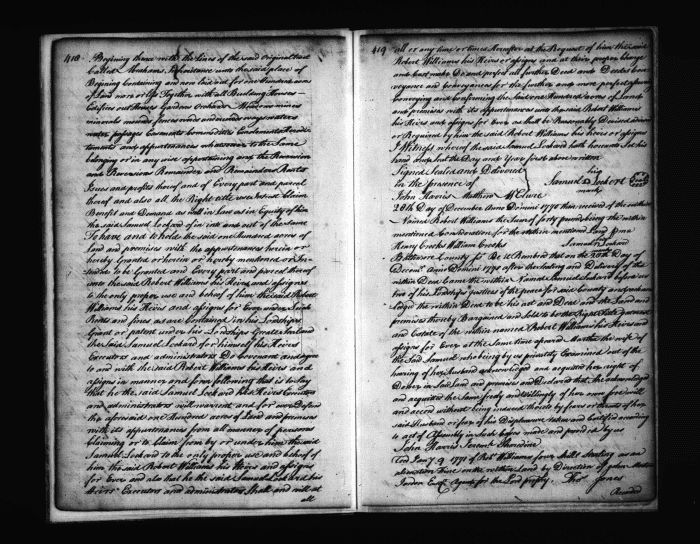 418
Begining thence with the lines of the said original tract
Called Abrahams Inheritance unto the said place of
Begining Containing and now laid out for one hundred acres
of Land more or less Together with all Buildings Houses
Edifices out Houses Gardens Orchards Meadows mines
minerals woods fences roads ways waters
water passages Easements Commodities Emoluments Heredi
taments and appurtenances whatsoever to the Same
belonging or in any wise appertaining and the Reversion
and Reversions Remainder and Remainders Rents
Issues and profits thereof and of Every part and parcel
thereof and also all the Right title interest Claim
Benefit and Demand as well in Law as in Equity of him
the said Samuel Lockard of in into and out of the same
To have and to hold the said one Hundred acres of
Land and premises with the appurtenances herein or
hereby Granted or herein or hereby mentioned or In-
tended to be Granted and Every part and parcel thereof
unto the said Robert Williams his Heirs and assigns
to the only proper use and behoof of him the said Robert
Williams his Heirs and assigns for Ever under such
Rents and fines as are Contained in his Lordships
Grant or patent under his Lordships Great Seal and
the said Samuel Lockard for himself his Heirs
Executors and administrators Do Covenant and agree
to and with the said Robert Williams his Heirs and
assigns in manner and form following that is to say
that he the said Samuel Lockard his Heirs Executors
and administrators will warrant and for ever Defend
the aforesaid one Hundred acres of Land and premises
with its appurtenances from all manner of persons
Claiming or to Claim from by or under him the said
Samuel Lockard to the only proper use and behoof of
him the said Robert Williams his Heirs and assigns
for Ever and also that he the said Samuel Lockard his
Heirs Executors and administrators Shall and will at
all
419
all or any time or times Hereafter at the Request of him the said
Robert Williams his Heirs or assigns and at their proper Charge
and Cost make Do and perfect all further Deed and Deeds Con
veyance and Conveyances for the further and more perfect
Conveying and Confirming the said one Hundred acres of Land
and premises with its appurtenances unto the said Robert Williams
his Heirs and assigns for Ever as shall be Reasonably Devised advised
or Required by him the said Robert Williams his Heirs or assigns
In Witness whereof the said Samuel Lockard hath hereunto Set his
hand and Seal the Day and Year first above written
Signed Sealed and Delivered
in the presence of
his
Samuel Lockert Seal
mark
John Harris Matthew McClure
20th Day of December Anno Domini 1770 then received of the within
Named Robert Williams the Sum of forty pounds being the within
mentioned Consideration for the within mentioned Land
Henry Crooks William Crooks Samuel Lockard
Baltimore County ss Be it Rembred that on the 20th Day of
Decemr Anno Domini 1770 after the Sealing and Delivery of the
within Deed Came the within Named Samuel Lockard before us
two of his Lordships Justices of the peace for said County and acknow
ledged the within Deed to be his act and Deed and the Land and
premises thereby Bargained and Sold to be the Right
and Estate of the within named Robert Williams his Heirs and
assigns for Ever at the Same time appeard Martha the wife of
the Said Samuel who being by us privately Examined out of the
hearing of her Husband acknowledged and acquitted her right of
Dower in Said Land and premises and Declared that she acknowledged
and acquitted the Same freely and willingly of her own free will
and accord without being induced thereto by fears or threats of her
said Husband or fear of his Displeasure taken and Certified according
to act of assembly in Such Cases made and provided by us
John Harris
Recd Jany 9 1771 of Robt Williams four Shill Sterling as an
alienation Fine on the within Land by Direction of John Morton
Jordon Esqr Agent for the Lord propty. Thos Jones
Recorded